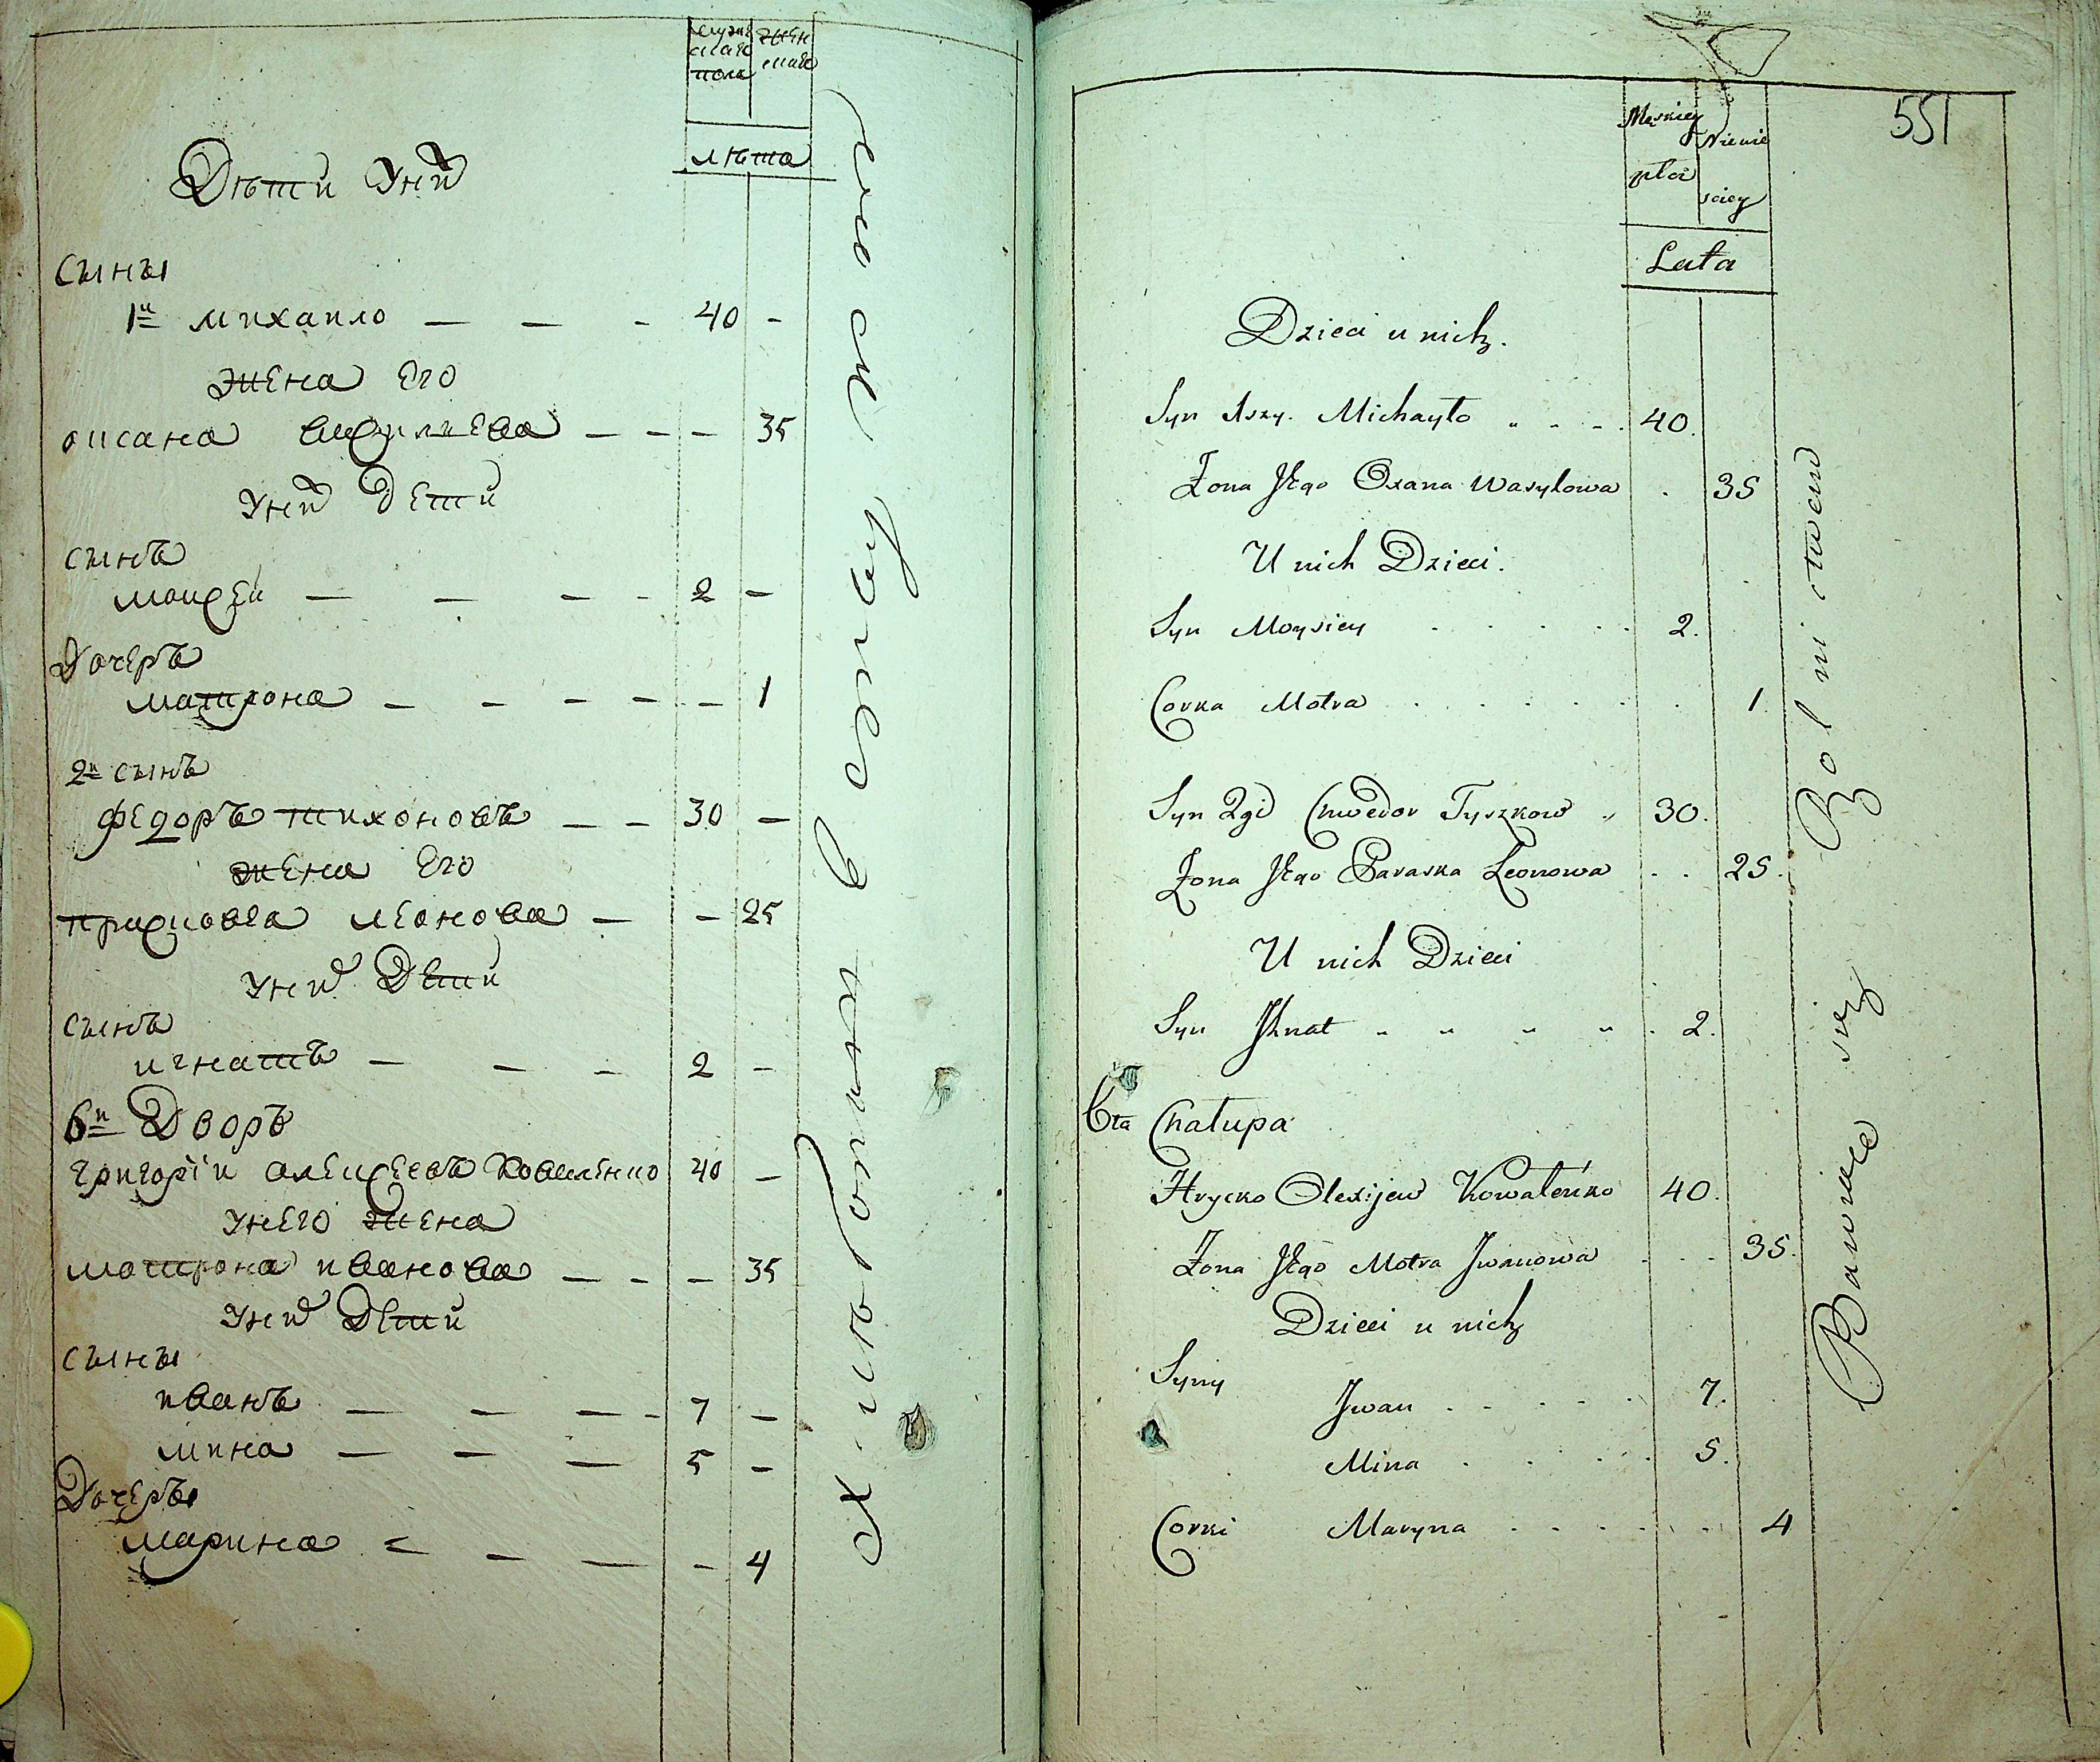 мужеска пола
женска
лѣта
Дѣти У них
Сыны
1й михаило — — - 40 -
жена Его
оксана василиева — — - 35
У них Дети
сынъ
моисей — — — - 2 —
Дочеръ
матрона — — — — - 1
2й сынъ
федоръ тихоновъ — — 30 —
жена Его
присковея леонова — - 25
У них Дети
Сынъ
игнатъ — — — 2 -
6й Дворъ
григорій алексеевъ коваленко 40 —
У него жена
матрона иванова — - - 35
У них Дети
сыны
иванъ — — — - 7 —
мина — — — 5 -
Дочеры
марина — — — - 4
хлѣбопашеством
551
Męskiey płci
Niewieściey
Lata
Dzieci u nich.
Syn 1szy. Michayło 40.
Żona Jego Oxana Wasylowa . 35
U nich Dzieci.
Syn Moysiey 2.
Corka Motra 1.
Syn 2gi Chwedor Tyszkow 30.
Żona Jego Paraska Leonowa 25.
U nich Dzieci
Syn Jhnat 2.
6ta Chałupa
Hrycko Olexijew Kowaleńko 40.
Żona Jego Motra Jwanowa 35.
Dzieci u nich
Syny
Jwan 7.
Mina 5.
Corki Maryna 4
Bawiące się Rolnictwem